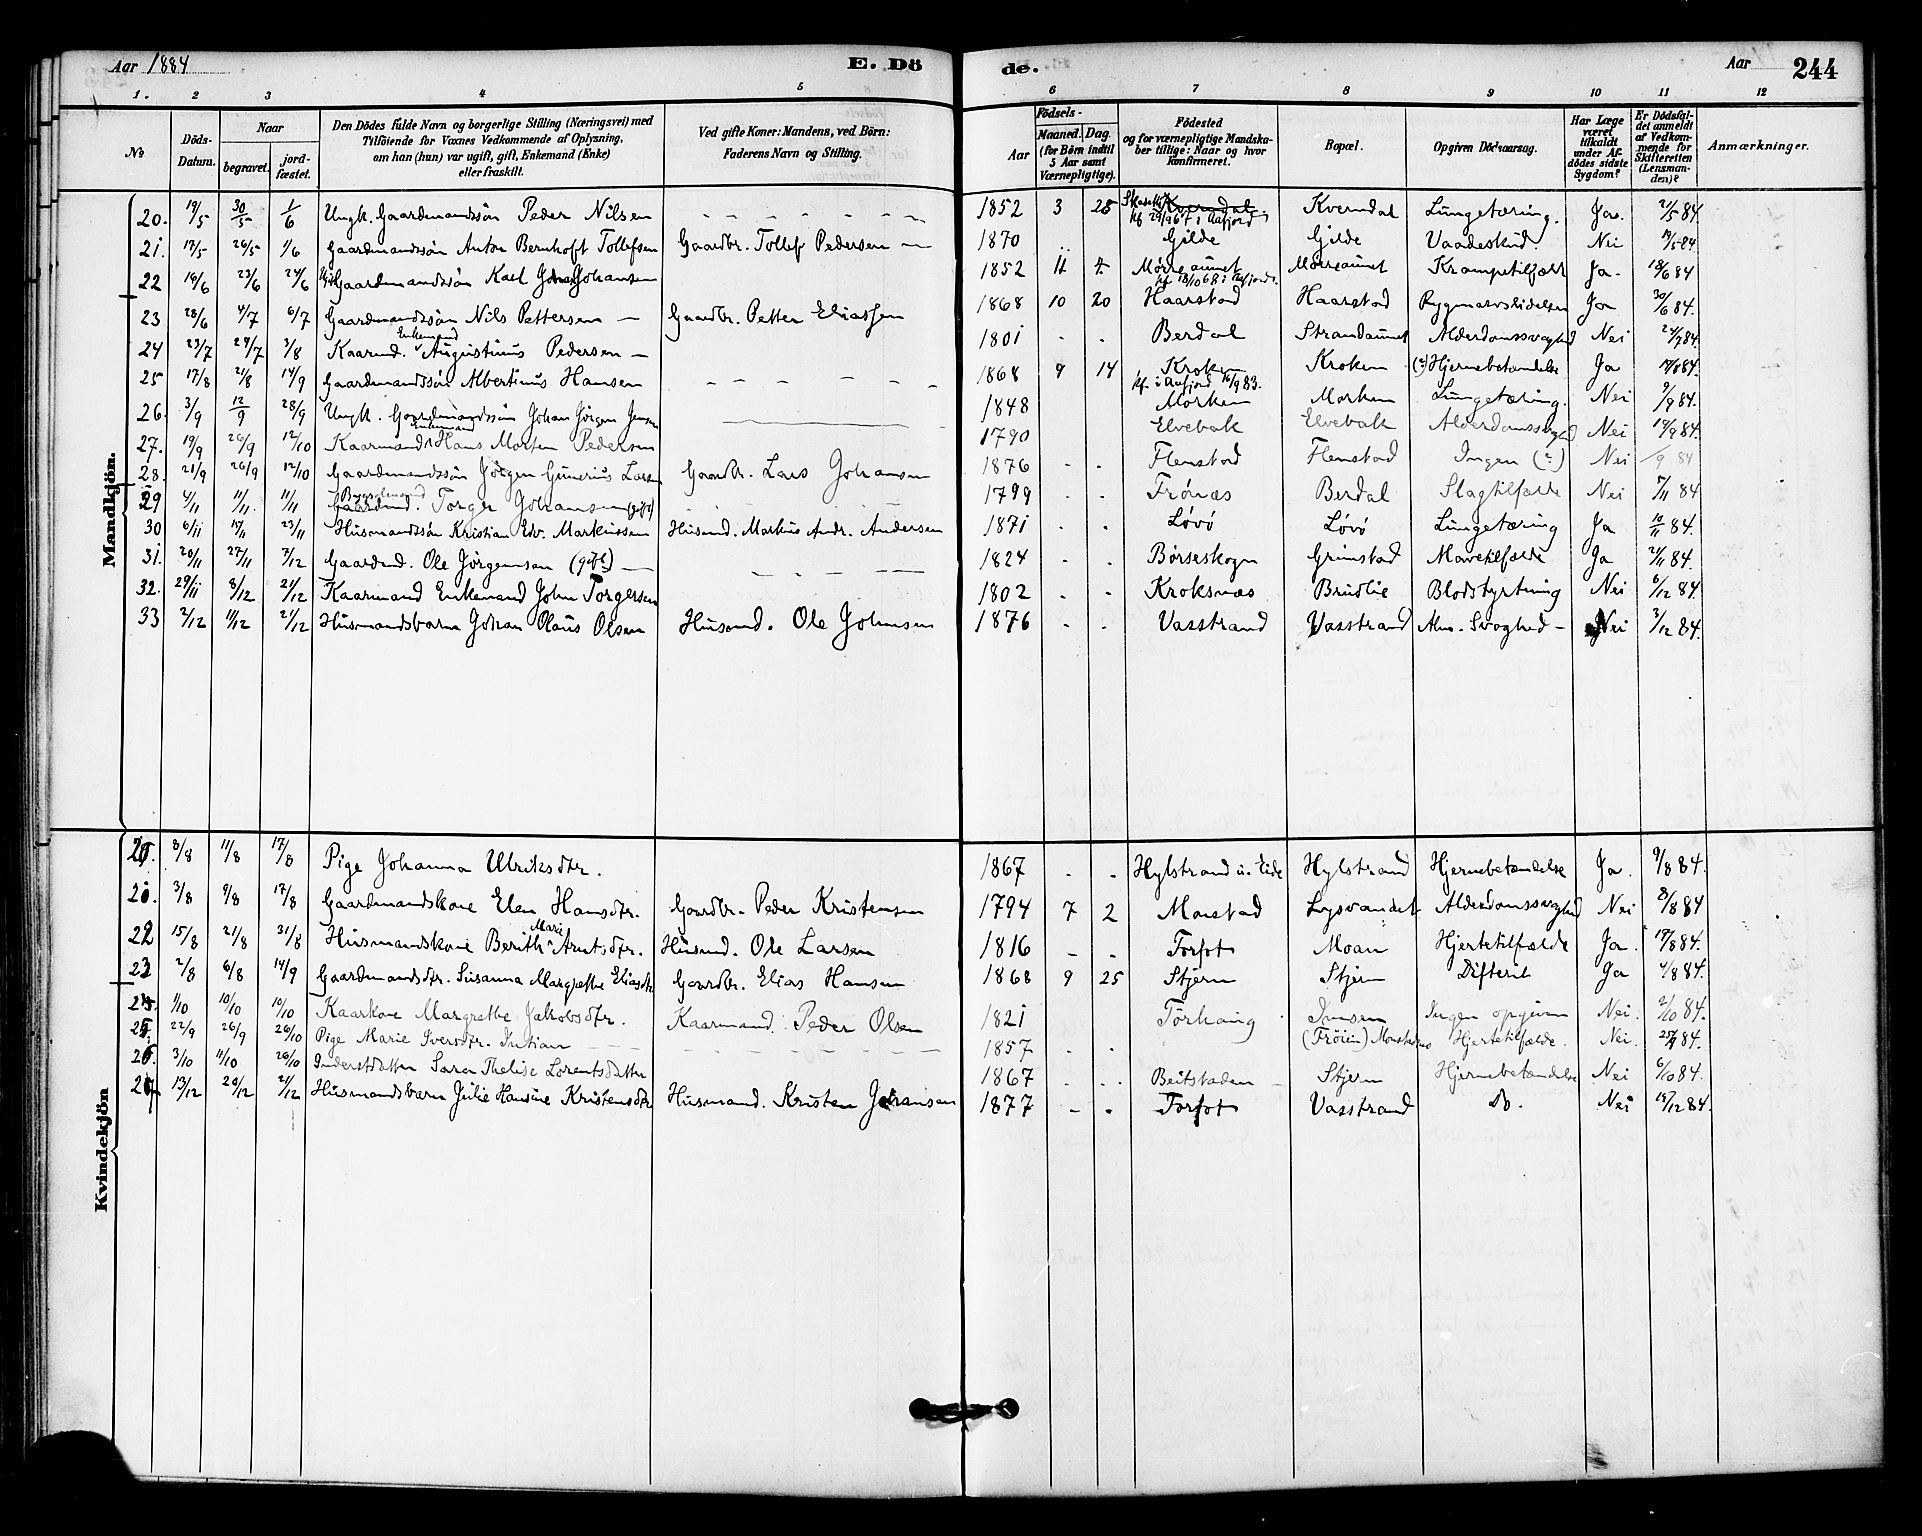 Aar 1884 E. Dö de. Aar 244
1. 2 3 4 5 6 7 8 9 10 11 12
№ Döds-Datum. Naar begravet. jord-fæstet. Den Dödes fulde Navn og borgerlige Stilling (Næringsvei) med Tilföiende for Voxnes Vedkommende af Oplysning, om han (hun) var ugift, gift, Enkemand (Enke) eller fraskilt. Ved gifte Koner: Mandens, ved Börn: Faderens Navn og Stilling. Födsels- Aar Maaned. Dag. (for Börn indtil 5 Aar samt Værnepligtige). Födested og for værnepligtige Mandska-ber tillige: Naar og hvor konfirmeret. Bopæl. Opgiven Dödsaarsag. Har Læge været tilkaldt under Af-dödes sidste Sygdom? Er Dödsfal-det anmeldt af Vedkom-mende for Skifteretten (Lensman-den)? Anmærkninger.
Mandkjön.
20. 19/5 30/5 1/6 Ungk. Gaardmandssön Peder Nilsen 1852 3 25 Kverndal kf. 29/9 67 i Aafjord Kverndal Lungetæring. Ja. 21/5 84
21. 17/5 26/5 1/6 Gaardmandssön Anton Bernhoft Tollefsen Gaardbr. Tollef Pedersen 1870 Gilde Gilde Vaadeskud. Nei 19/5 84
22 14/6 23/6 24/6 Gaardmandssön Karl Johansen 1852 11 4. Mørreaunet kf. 18/10 68 i Aafjord. Mørreaunet Krampetilfælde Ja. 18/6 84
23 28/6 4/7 6/7 Gaardmandssön Nils Pettersen Gaardbr. Petter Eliassen 1868 10 20 Haarstad Haarstad Rygmarvslidelse Ja 30/6 84.
24 23/7 29/7 3/8 Kaarmd. Enkemand Augustinus Pedersen 1801 Berdal Strandaunet Alderdomssvaghed Nei 24/7 84
25 17/8 21/8 14/9 Gaardmandssön Albertinus Hansen 1868 9 14 Kroken kf. i Aafjord 16/9 83. Kroken (?) Hjernebetændelse Ja 19/8 84.
26. 3/9 12/9 28/9 Ungk. Gaardmandssön Johan Jörgen Jensen 1848 Morken Morken Lungetæring. Nei 9/9 84.
27. 19/9 26/9 12/10 Kaarmand Enkemand Hans Morten Pedersen 1790 Elvebak Elvebak Alderdomssvaghed Nei 19/9 84.
28. 21/9 26/9 12/10 Gaardmandssön Jörgen Gunerius Larsen Gaardbr. Lars Johansen 1876 Flenstad Flenstad Ingen (?) Nei /9 84
29 4/11 11/11 11/11 Gaardmd. Torger Johansen (gift) 1799 Frónæs Berdal Slagtilfælde Nei 5/11 84
30 6/11 17/11 23/11 Husmandssön Kristian Edv. Markussen Husmd. Markus Andr. Andersen 1871 Lóvó Lóvó Lungetæring Ja 10/11 84.
31. 20/11 27/11 7/12 Gaardmd. Ole Jörgensen (gift) 1824 Börseskogn Grimstad Mavetilfælde Ja 21/11 84.
32. 29/11 8/12 21/12 Kaarmand Enkemand John Torgersen 1802 Kroksnæs Brudlie Blodstyrtning Nei 6/12 84
33 2/12 11/12 21/12 Husmandsbarn Johan Olaus Olsen Husmd. Ole Johnsen 1876 Vasstrand Vasstrand Alm. Svaghed Nei 3/12 84.
Kvindekjön
20. 3/8 11/8 17/8 Pige Johanna Ulriksdtr. 1867 Hylstrand u. Eide Hylstrand Hjernebetændelse Ja. 9/8 84.
21. 3/8 9/8 17/8 Gaardmandskone Elen Hansdtr. Gaardbr. Peder Kristensen 1794 7 2 Monstad Lysvandet Alderdomssvaghed Nei 8/8 84
22 15/8 21/8 31/8 Husmandskone Berith Marie Arntsdtr. Husmd. Ole Larsen 1816 Forfot Moan Hjertetilfælde Ja. 19/8 84.
23 2/8 6/8 14/9 Gaardmandsdtr. Susanna Margrethe Eliasdtr Gaardbr. Elias Hansen 1868 9 25 Stjern Stjern Difterit Ja 4/8 84.
1/10 10/10 10/10 Kaarkone Margrethe Jakobsdtr. Kaarmand Peder Olsen 1821 Tørhaug Ingen opgiven Nei. 2/10 84.
25. 22/9 26/9 26/10 Pige Marie Iversdtr. 1857 (Fröien) Hjertetilfælde. Nei. 25/9 84.
26. 3/10 11/10 26/10 Inderstdatter Sara Thelise Lorentsdatter 1867 Beitstaden Stjern Hjernebetændelse Nei 6/10 84.
27 13/12 20/12 21/12 Husmandsbarn Julie Hansine Kristensdtr Husmand. Kristen Johansen 1877 Forfot Vasstrand Do. Nei 15/12 84.